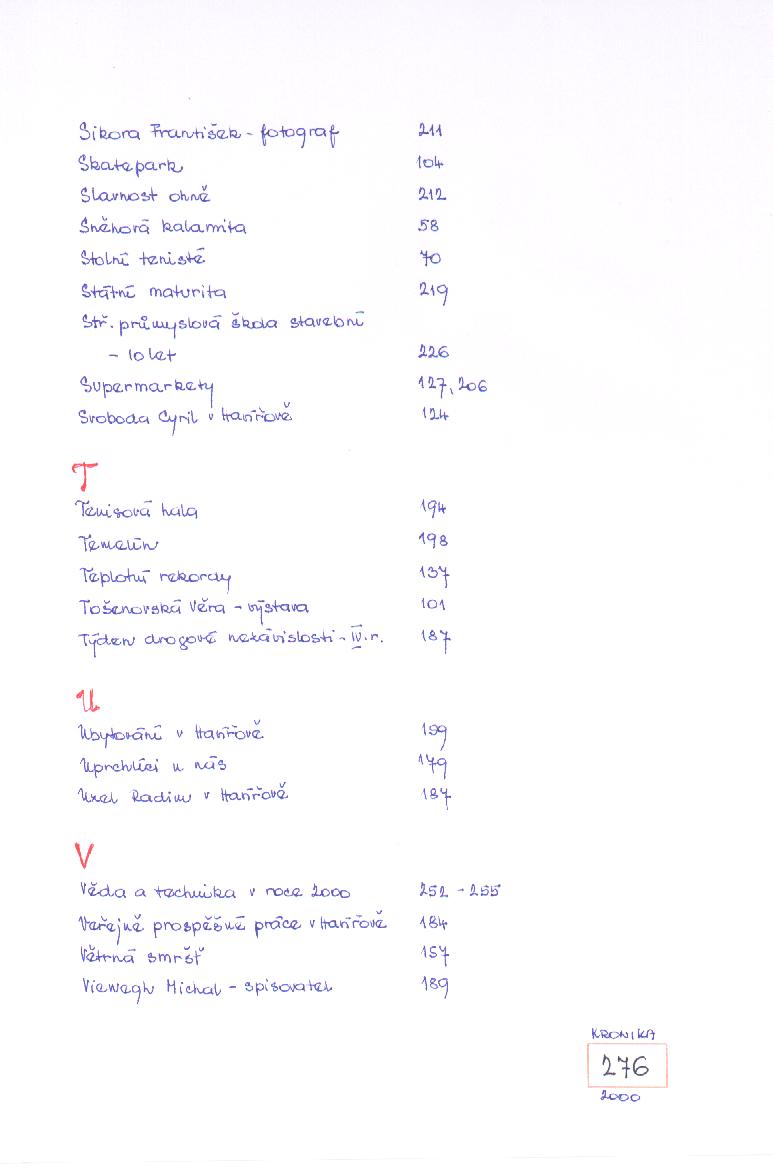 Sikora František - fotograf 211
Skatepark 104
Slavnost ohně 212
Sněhová kalamita 58
Stolní tenisté 70
Státní maturita 219
Stř. průmyslová škola stavební
- 10 let 226
Supermarkety 127, 206
Svoboda Cyril v Havířově 124
T
Tenisová hala 194
Temelín 198
Teplotní rekordy 137
Tošenovská Věra - výstava 101
Týden drogové nezávislosti - IV. r. 187
U
Ubytování v Havířově 199
Uprchlíci u nás 179
Uzel Radim v Havířově 187
V
Věda a technika v roce 2000 252 - 255
Veřejně prospěšné práce v Havířově 184
Větrná smršť 157
Viewegh Michal - spisovatel 189
KRONIKA
276
2000